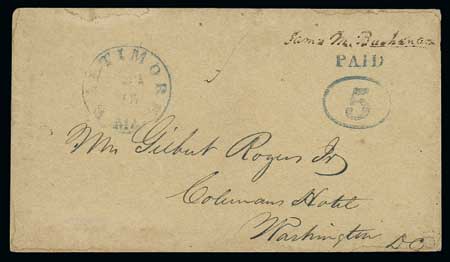 James M. Buchanan
PAID
5
BALTIMORE
MD
Mr Gilbert Rogers Jr
Colemans Hotel
Washington
D.C.